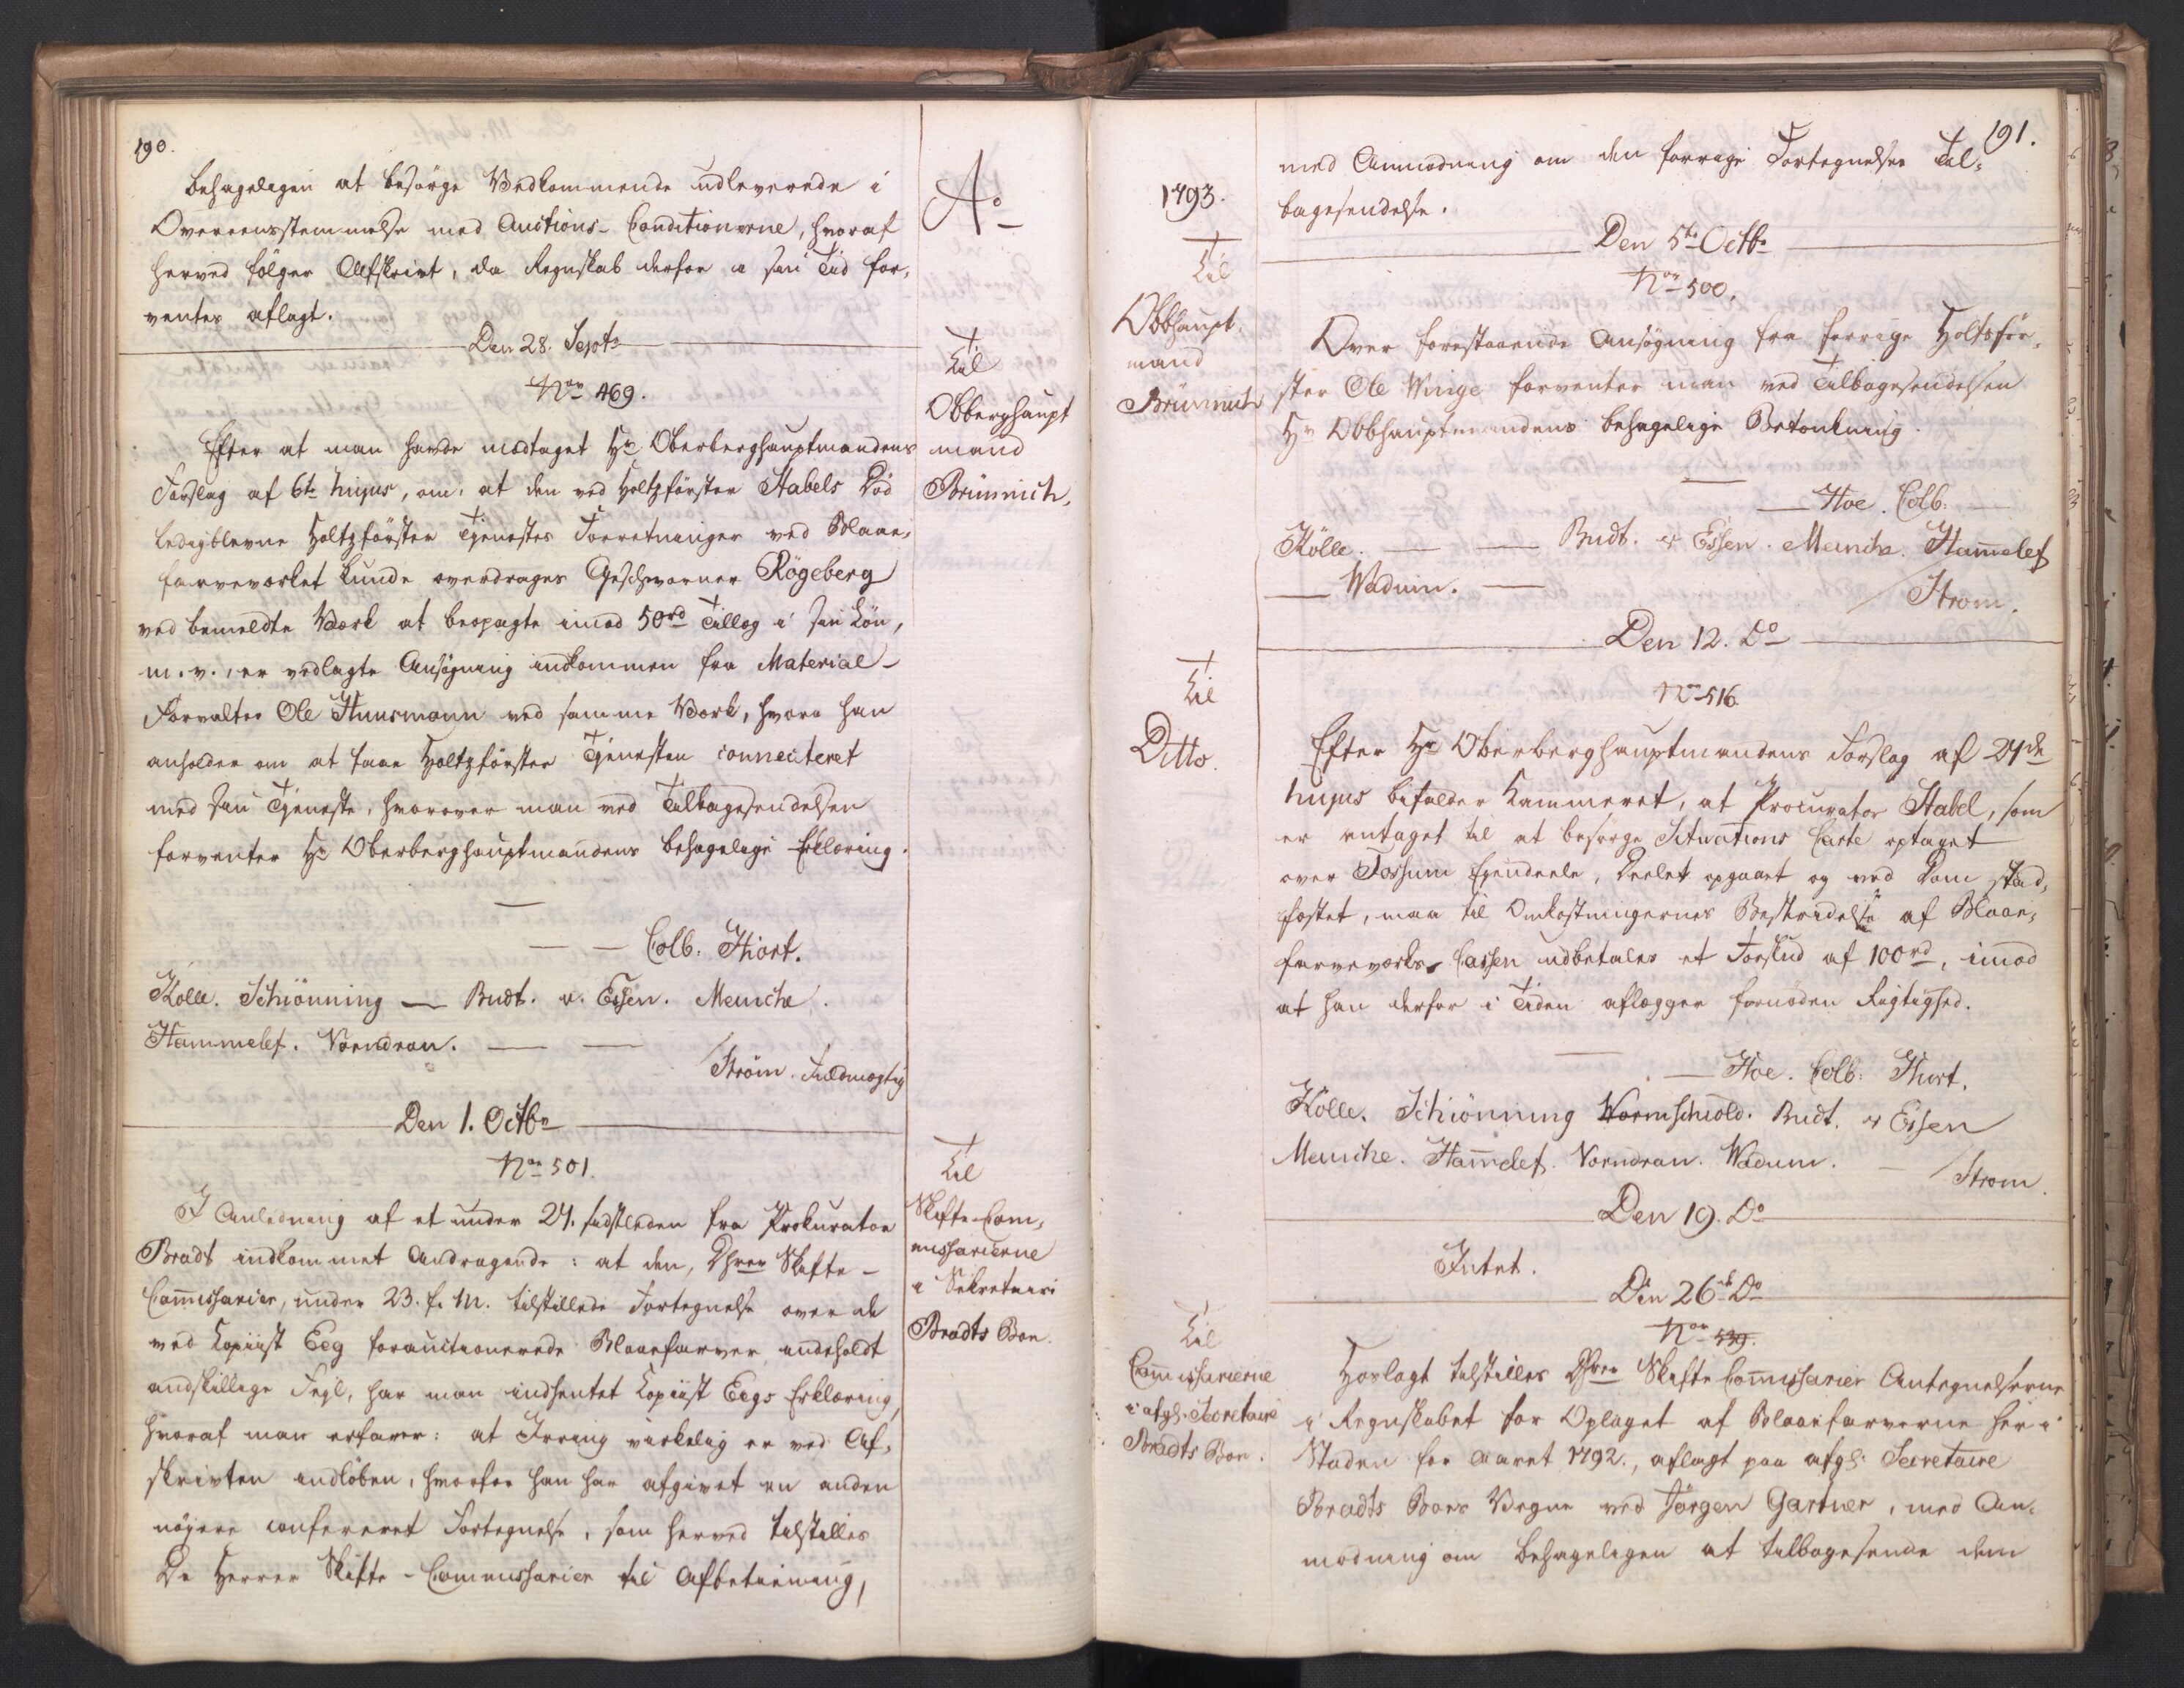 190.
behageligen at besørge Vedkommende udleverede i
Overeensstemmelse med Auctions-Conditionerne, hvoraf
herved følger Afskrivt, da Regnskab derfor i sin Tid for-
ventes aflagt.
Den 28. Septr
No 469.
Efter at man havde modtaget Hr Oberberghauptmandens
Forslag af 6te hujus, om, at den ved Holtzførster Stabels Død
ledigblevne Holtzførster Tjenestes Forretninger ved Blaae-
farveværket kunde overdrages Geschworner Rögeberg
ved bemeldte Værk at besørgte imod 50rd Tillæg i sin Løn,
m. v., er vedlagte Ansøgning indkommen fra Material-
Forvalter Ole Huusmann ved samme Værk, hvori han
anholder om at faae Holtzførster Tjenesten connecteret
med sin Tjeneste, hvorover man ved Tilbagesendelsen
forventer Hr Oberberghauptmandens behagelige Erklæring.
Colb: Hiort.
Kölle. Schiönning — Budt. v. Essen. Meinche.
Hammelef. Vorndran.
Strøm. Fuldmægtig
Den 1. Octbr
No 501.
I Anledning af et under 24. sidstleden fra Prokurator
Bradt indkommet Andragende: at den, DHrrer Skifte-
Commissarier, under 23. f. M. tilstillede Fortegnelse over de
ved Kopiist Eeg forauctionerede Blaaefarver indeholdt
adskillige Fejl, har man indhentet Kopiist Eegs Erklæring,
hvoraf man erfarer: at Irring virkelig er ved Af-
skrivten indløben, hvorfor han har afgivet en anden
nøjere confereret Fortegnelse, som herved tilstilles
De Herrer Skifte-Commissarier til Afbetiening,
Ao
Til
Obberghaupt
mand
Brünnich.
Til
Skifte-Com-
missarierne
i Sekretairi
Bradts Boe.
191.
1793.
med Anmodning om den forrige Fortegnelses Til-
bagesendelse.
Den 5te Octbr
No 500.
Til
Obbhaupt-
mand
Brünnich
Over forestaaende Ansøgning fra forrige Holtsfør-
ster Ole Winge forventer man ved Tilbagesendelsen
Hr Obbhauptmandens behagelige Betænkning.
Hoe. Colb:
Kölle. — — Budt. v Essen. Meinche. Hammelef
Wadum.
Strøm.
Den 12. Do
No 516.
Til
Ditto.
Efter Hr Oberberghauptmandens Forslag af 24de
hujus bifalder Kammeret, at Procurator Stabel, som
er antaget til at besørge Situations Carte optaget
over Fossum Ejendeele, Deelet opgaaet og ved Dom stad-
fæstet, maa til Omkostningernes Bestridelse af Blaae-
farveværks Cassen udbetales et Forskud af 100rd, imod
at han derfor i Tiden aflægger fornøden Rigtighed.
Hoe. Colb: Hiort.
Kölle. Schiönning Wormschiold. Budt. v Essen
Meinche. Hammelef. Vorndran. Wadum.
Strøm.
Den 19. Do
Intet.
Den 26de Do
No 539.
Til
Commissarierne
i afgl: Secretaire
Bradts Boe.
Hoslagt tilstilles DHrrer Skifte Commissarier Antegnelserne
i Regnskabet for Oplaget af Blaaefarverne her i
Staden for Aaret 1792., aflagt paa afgl: Secretaire
Bradts Boes Vegne ved Jørgen Gartner, med An-
modning om behageligen at tilbagesende dem